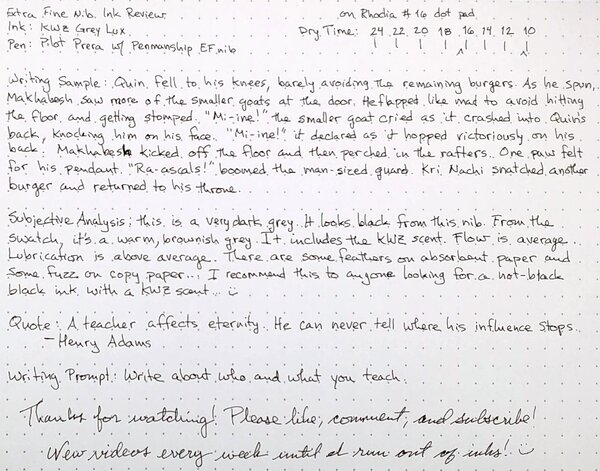 Extra Fine Nib Ink Review on Rhodia #16 dot pad
Ink: KWZ Grey Lux Dry Time: 24 22 20 18 16 14 12 10
Pen: Pilot Prera w/ Penmanship EF nib
Writing Sample: Quin fell to his knees, barely avoiding the remaining burgers. As he spun,
Makhabesh saw more of the smaller goats at the door. He flapped like mad to avoid hitting
the floor and getting stomped. "Mi-ine!" the smaller goat cried as it crashed into Quin's
back, knocking him on his face. "Mi-ine!" it declared as it hopped victoriously on his
back. Makhabesh kicked off the floor and then perched in the rafters. One paw felt
for his pendant. "Ra-ascals!" boomed the man-sized guard. Kri Nachi snatched another
burger and returned to his throne.
Subjective Analysis: this is a very dark grey. It looks black from this nib. From the
swatch, it's a warm, brownish grey. It includes the KWZ scent. Flow is average
Lubrication is above average. There are some feathers on absorbent paper and
some fuzz on copy paper... I recommend this to anyone looking for a not-black
black ink with a KWZ scent.. :)
Quote: A teacher affects eternity. He can never tell where his influence stops.
- Henry Adams
Writing Prompt: Write about who and what you teach.
Thanks for watching! Please like, comment, and subscribe!
New videos every week until I run out of inks! :)